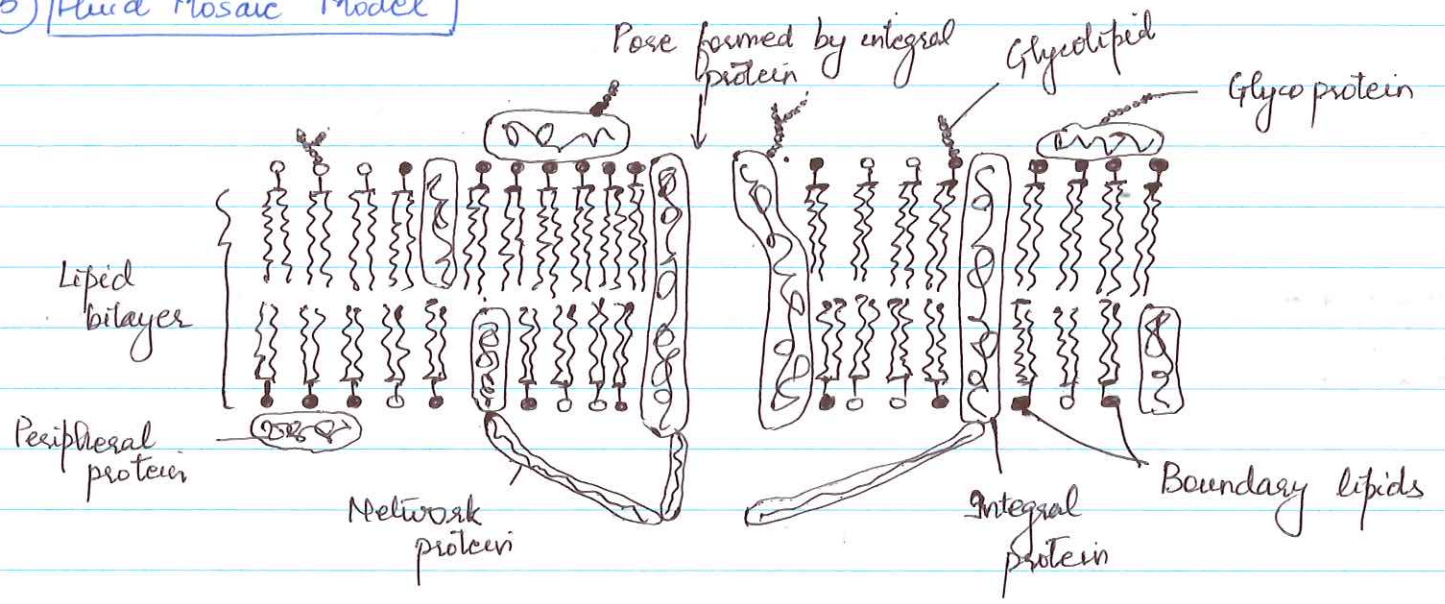 Fluid Mosaic Model
Pore formed by integral
protein
Glycolipid
Glycoprotein
Lipid
bilayer
Peripheral
protein
Network
protein
Integral
protein
Boundary lipids